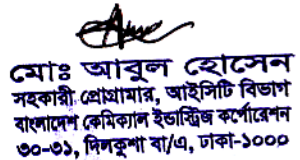 মোঃ আবুল হোসেন
সহকারী প্রোগ্রামার, আইসিটি বিভাগ
বাংলাদেশ কেমিক্যাল ইন্ডাস্ট্রিজ কর্পোরেশন
৩০-৩১, দিলকুশা বা/এ, ঢাকা-১০০০